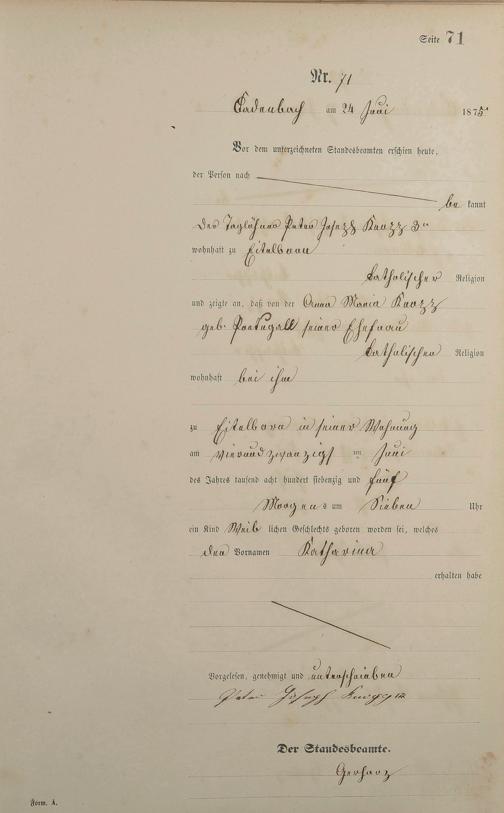 Seite 71
Nr. 71
Cadenbach am 24 Juni 1875
Vor dem unterzeichneten Standesbeamten erschien heute,
der Person nach
be kannt
der Taglöhner Peter Joseph
wohnhaft zu Eitelborn
katholischer Religion
und zeigte an, daß von der Anna Maria
geb. Portugall seiner Ehefrau
katholischen Religion
wohnhaft bei ihm
zu Eitelborn in seiner Wohnung
am vierundzwanzigsten Juni
des Jahres tausend acht hundert siebenzig und fünf
Morgens um Sieben Uhr
ein Kind Weib lichen Geschlechts geboren worden sei, welches
den Vornamen Katharina
erhalten habe
Vorgelesen, genehmigt und unterschrieben
Peter Joseph
Der Standesbeamte.
Gerharz
Form. A.